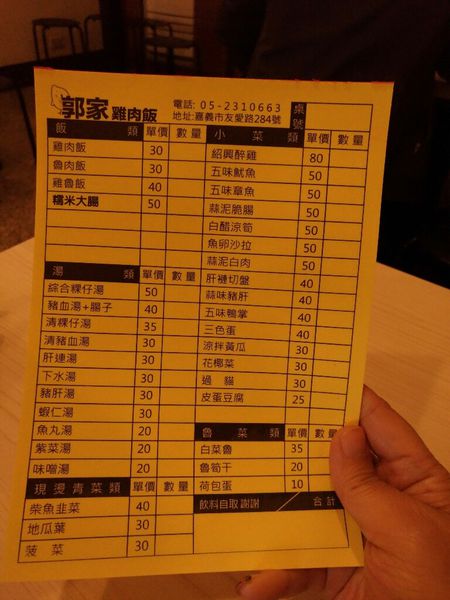 郭家雞肉飯
電話: 05-2310663
地址:嘉義市友愛路284號
桌號
飯 類 單價 數量
雞肉飯 30
魯肉飯 30
雞魯飯 40
糯米大腸 50
湯 類 單價 數量
綜合粿仔湯 50
豬血湯+腸子 40
清粿仔湯 35
清豬血湯 30
肝連湯 30
下水湯 30
豬肝湯 30
蝦仁湯 30
魚丸湯 20
紫菜湯 20
味噌湯 20
現燙青菜類 單價 數量
柴魚韭菜 40
地瓜葉 30
菠菜 30
小菜類 單價 數量
紹興醉雞 80
五味魷魚 50
五味章魚 50
蒜泥脆腸 50
白醋涼筍 50
魚卵沙拉 50
蒜泥白肉 50
肝褳切盤 40
蒜味豬肝 40
五味鴨掌 40
三色蛋 40
涼拌黃瓜 30
花椰菜 30
過貓 30
皮蛋豆腐 25
魯菜類 單價 數量
白菜魯 35
魯筍干 20
荷包蛋 10
飲料自取 謝謝 合計